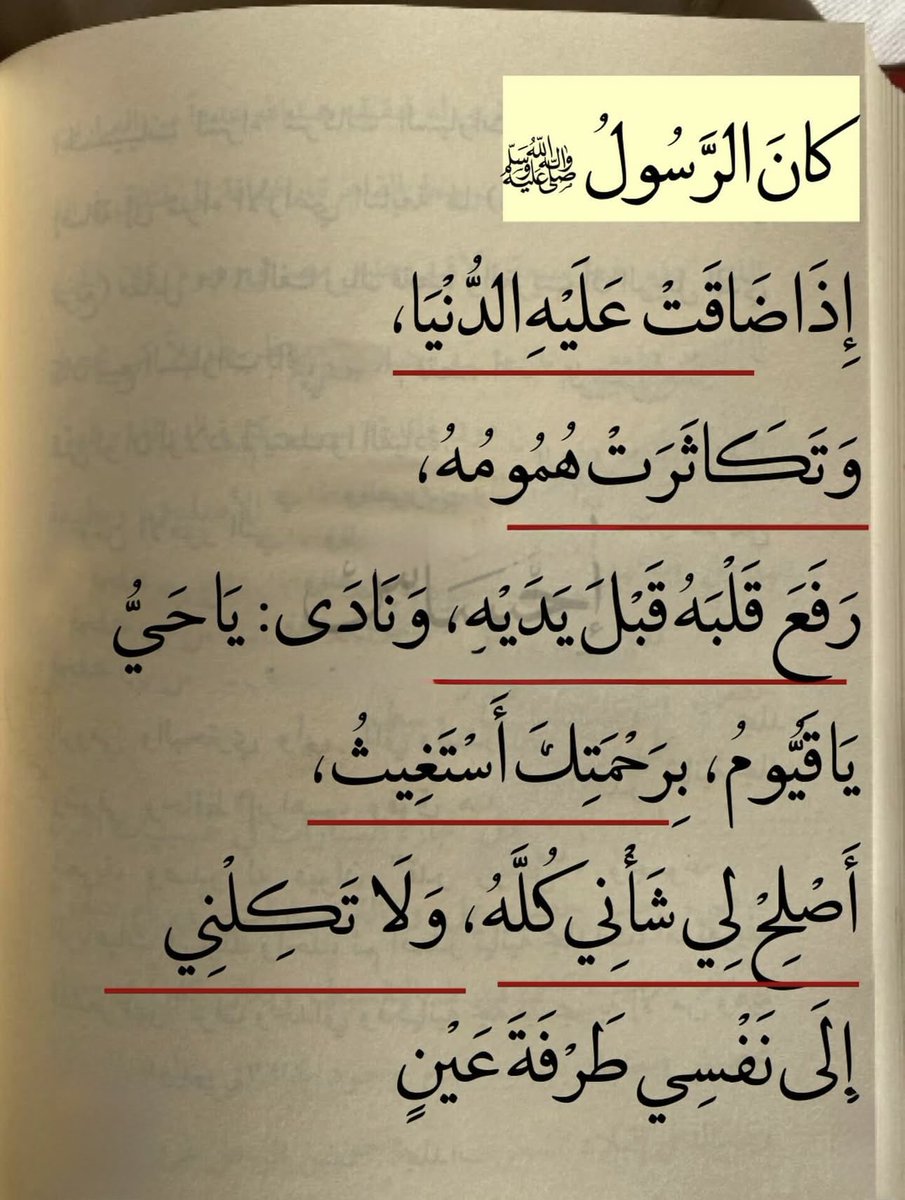 كانَ الرَّسُولُ ﷺ
إِذَا ضَاقَتْ عَلَيْهِ الدُّنْيَا،
وَتَكَاثَرَتْ هُمُومُهُ،
رَفَعَ قَلْبَهُ قَبْلَ يَدَيْهِ، وَنَادَى: يَا حَيُّ
يَا قَيُّومُ، بِرَحْمَتِكَ أَسْتَغِيثُ،
أَصْلِحْ لِي شَأْنِي كُلَّهُ، وَلَا تَكِلْنِي
إِلَى نَفْسِي طَرْفَةَ عَيْنٍ